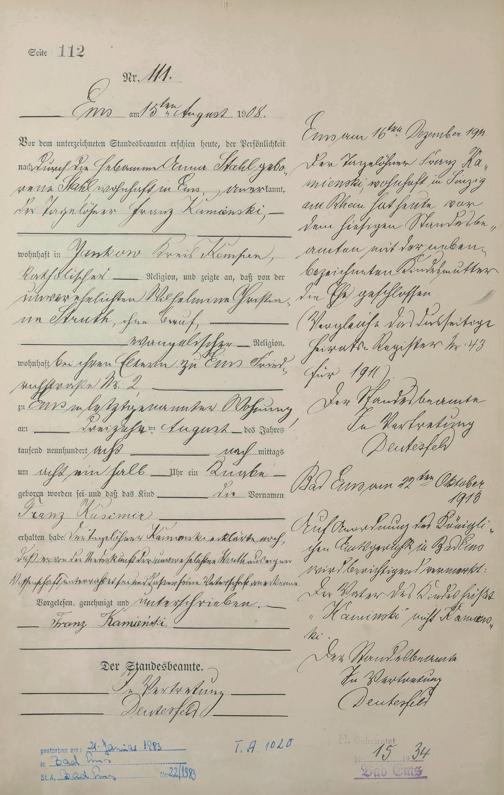 Seite 112
Nr. 111.
Ems am 15ten August 1908.
Vor dem unterzeichneten Standesbeamten erschien heute, der Persönlichkeit
nach durch die Hebamme Anna Stahl gebo-
rene Stahl wohnhaft in Ems, anerkannt,
der Tagelöhner Franz Kamienski,
wohnhaft in Jankow Kreis
katholischer Religion, und zeigte an, daß von der
unverehelichten Wilhelmine
Struth, ohne Beruf,
evangelischer Religion,
wohnhaft bei ihren Eltern zu Ems
Nr. 2
zu Ems in letztgenannter Wohnung,
am dreizehnten August des Jahres
tausend neunhundert acht nach mittags
um acht ein halb Uhr ein Knabe
geboren worden sei und daß das Kind die Vornamen
Franz
erhalten habe. Der Tagelöhner Kamienski erklärte noch,
daß er
Vaterschaft anerkenne
Vorgelesen, genehmigt und unterschrieben.
Franz Kamieński
Der Standesbeamte.
In Vertretung
Deutesfeld
Ems am 16ten Dezember 1911
Der Tagelöhner Franz Ka-
mienski, wohnhaft in Sinzig
am Rhein hat heute vor
dem hiesigen Standesbe-
amten mit der neben-
bezeichneten Kindesmutter
die Ehe geschlossen
Vergleiche das diesseitige
Heirats-Register Nr. 43
für 1911)
Der Standesbeamte
In Vertretung
Deutesfeld
Bad Ems am 22ten Oktober
1913
Auf Anordnung des Königli-
chen Amtsgerichts in Bad Ems
wird berichtigend vermerkt:
Der Vater des Kindes heißt
"Kaminski" nicht Kamiens-
ki.
Der Standesbeamte
In Vertretung
Deutesfeld
gestorben am: 21. Januar 1983
in Bad Ems
St.A. Bad Ems Nr. 22/1983
T.A 1020
15 34
Bad Ems